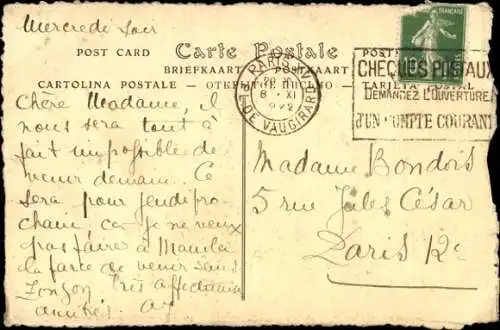 Mercredi soir
POST CARD
Carte Postale
BRIEFKAART
CARTOLINA POSTALE
PARIS XV
8 · XI
922
R. DE VAUGIRARD
CHEQUES POSTAUX
DEMANDEZ L'OUVERTURE
D'UN COMPTE COURANT
Chère Madame, il
nous sera tout à
fait impossible de
venir demain. Ce
sera pour jeudi pro-
chain, car je ne veux
pas faire à
la farce de venir sans
Très affectueuses
amitiés.
Madame Bondois
5 rue Jules César
Paris 12e